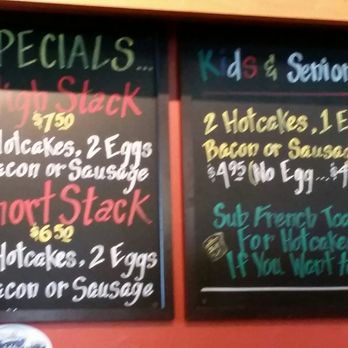 PECIALS...
High Stack
$7.50
Hotcakes, 2 Eggs
Bacon or Sausage
Short Stack
$6.50
Hotcakes, 2 Eggs
Bacon or Sausage
Kids & Senior
2 Hotcakes, 1 E
Bacon or Sausag
$4.95 (No Egg...$4
Sub French Toa
For Hotcake
If You Want t